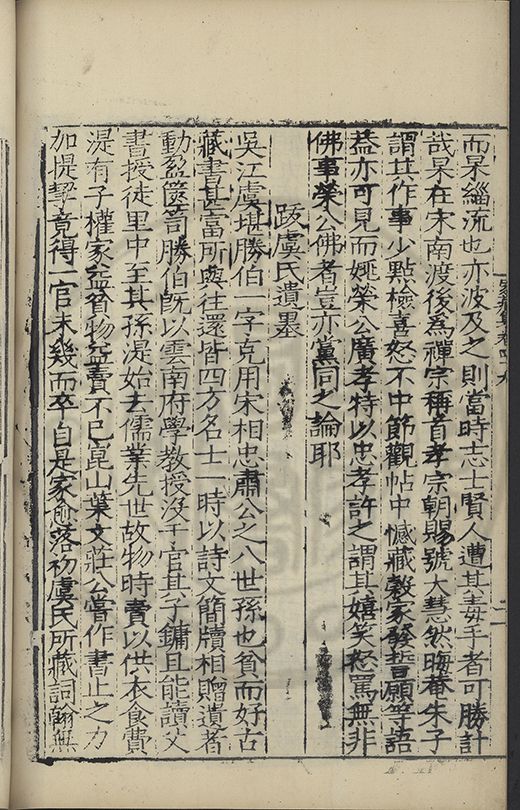 而杲緇流也亦波及之則當時志士賢人遭其毒手者可勝計
哉杲在宋南渡後爲禪宗稱首孝宗朝賜號大慧然晦菴朱子
謂其作事少點檢喜怒不中節觀帖中憾藏穀家發誓願等語
益亦可見而姚榮公廣孝特以忠孝許之謂其嬉笑怒罵無非
佛事榮公佛者豈亦黨同之論耶
跋虞氏遺墨
吳江虞堪勝伯一字克用宋相忠肅公之八世孫也貧而好古
藏書甚富所與往還皆四方名士一時以詩文簡牘相贈遺者
動盈篋笥勝伯旣以雲南府學教授沒于官其子鏞且能讀父
書授徒里中至其孫湜始去儒業先世故物時賣以供衣食費
湜有子權家益貧物益賣不已崑山葉文莊公嘗作書止之力
加提挈竟得一官未幾而卒自是家愈落初虞氏所藏詞翰無